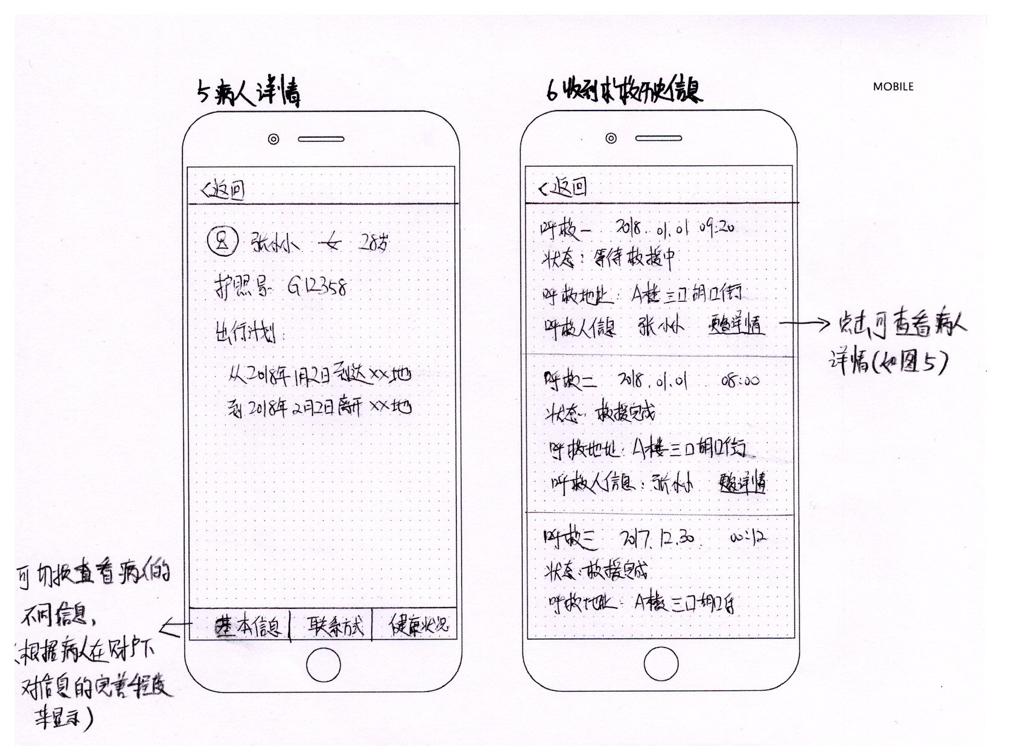 5 病人详情
6 收到求救历史信息
MOBILE
<返回
张小小 女 28岁
护照号: G12358
出行计划:
从2018年1月2日到达XX地
到2018年2月2日离开XX地
基本信息 联系方式 健康状况
可切换查看病人的
不同信息,
(根据病人在
对信息的完善程度
显示)
<返回
呼救一 2018.01.01 09:20
状态: 等待救援中
呼救地址: A楼三口胡口街
呼救人信息 张小小 更多详情
点击可查看病人
详情(如图5)
呼救二 2018.01.01 08:00
状态: 救援完成
呼救地址: A楼三口胡口街
呼救人信息: 张小小 更多详情
呼救三 2017.12.30 00:12
状态: 救援完成
呼救地址: A楼三口胡口